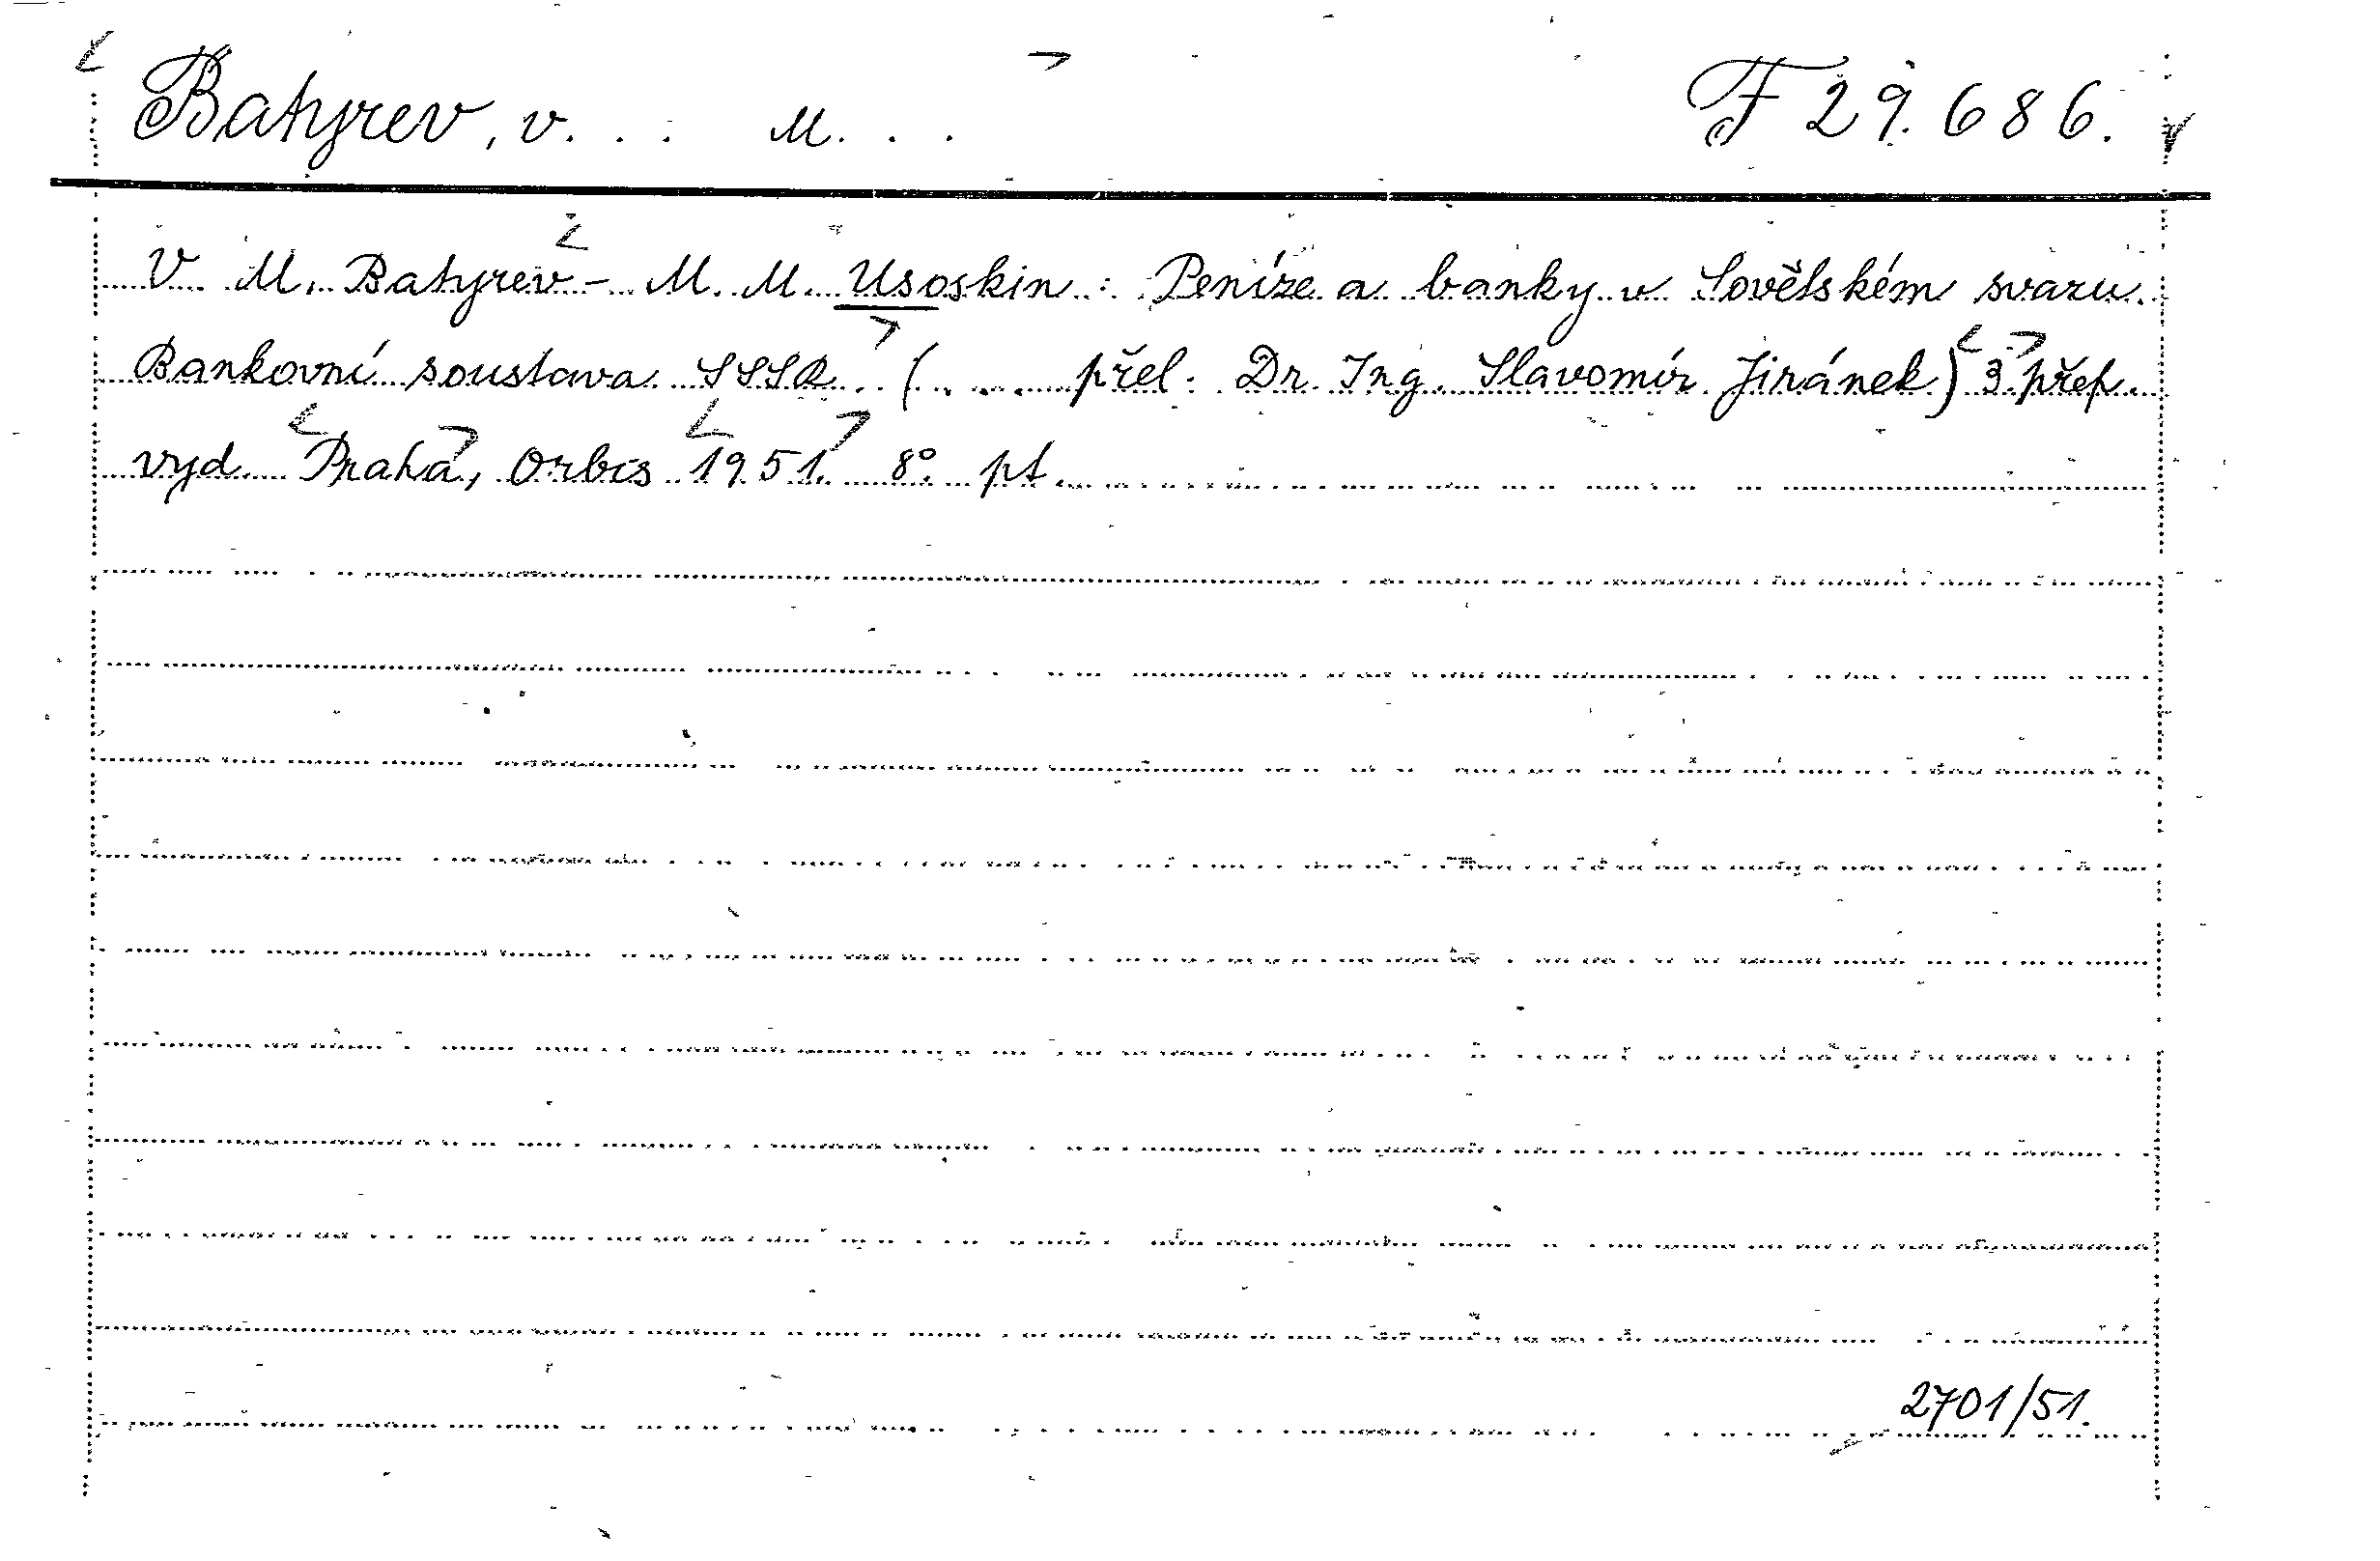 Batyrev, V. . . M. . . F 29.686.
V. M. Batyrev - M. M. Usoskin : Peníze a banky v Sovětském svazu.
Bankovní soustava SSSR. . (. ... přel. Dr. Ing. Slavomír Jiránek) 3. přep.
vyd. Praha, Orbis 1951. 8°. pt.
2701/51.